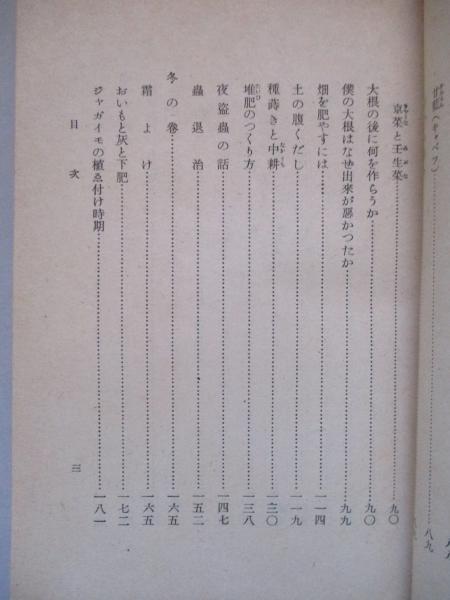 甘藍（キャベツ）……八九
京菜と壬生菜……九〇
大根の後に何を作らうか……九〇
僕の大根はなぜ出来が惡かつたか……九九
畑を肥やすには……一一四
土の腹くだし……一一九
種蒔きと中耕……一三〇
堆肥のつくり方……一三八
夜盜蟲の話……一四七
蟲退治……一五二
冬の卷……一六五
霜よけ……一六五
おいもと灰と下肥……一七二
ジャガイモの植ゑ付け時期……一八一
目次
三